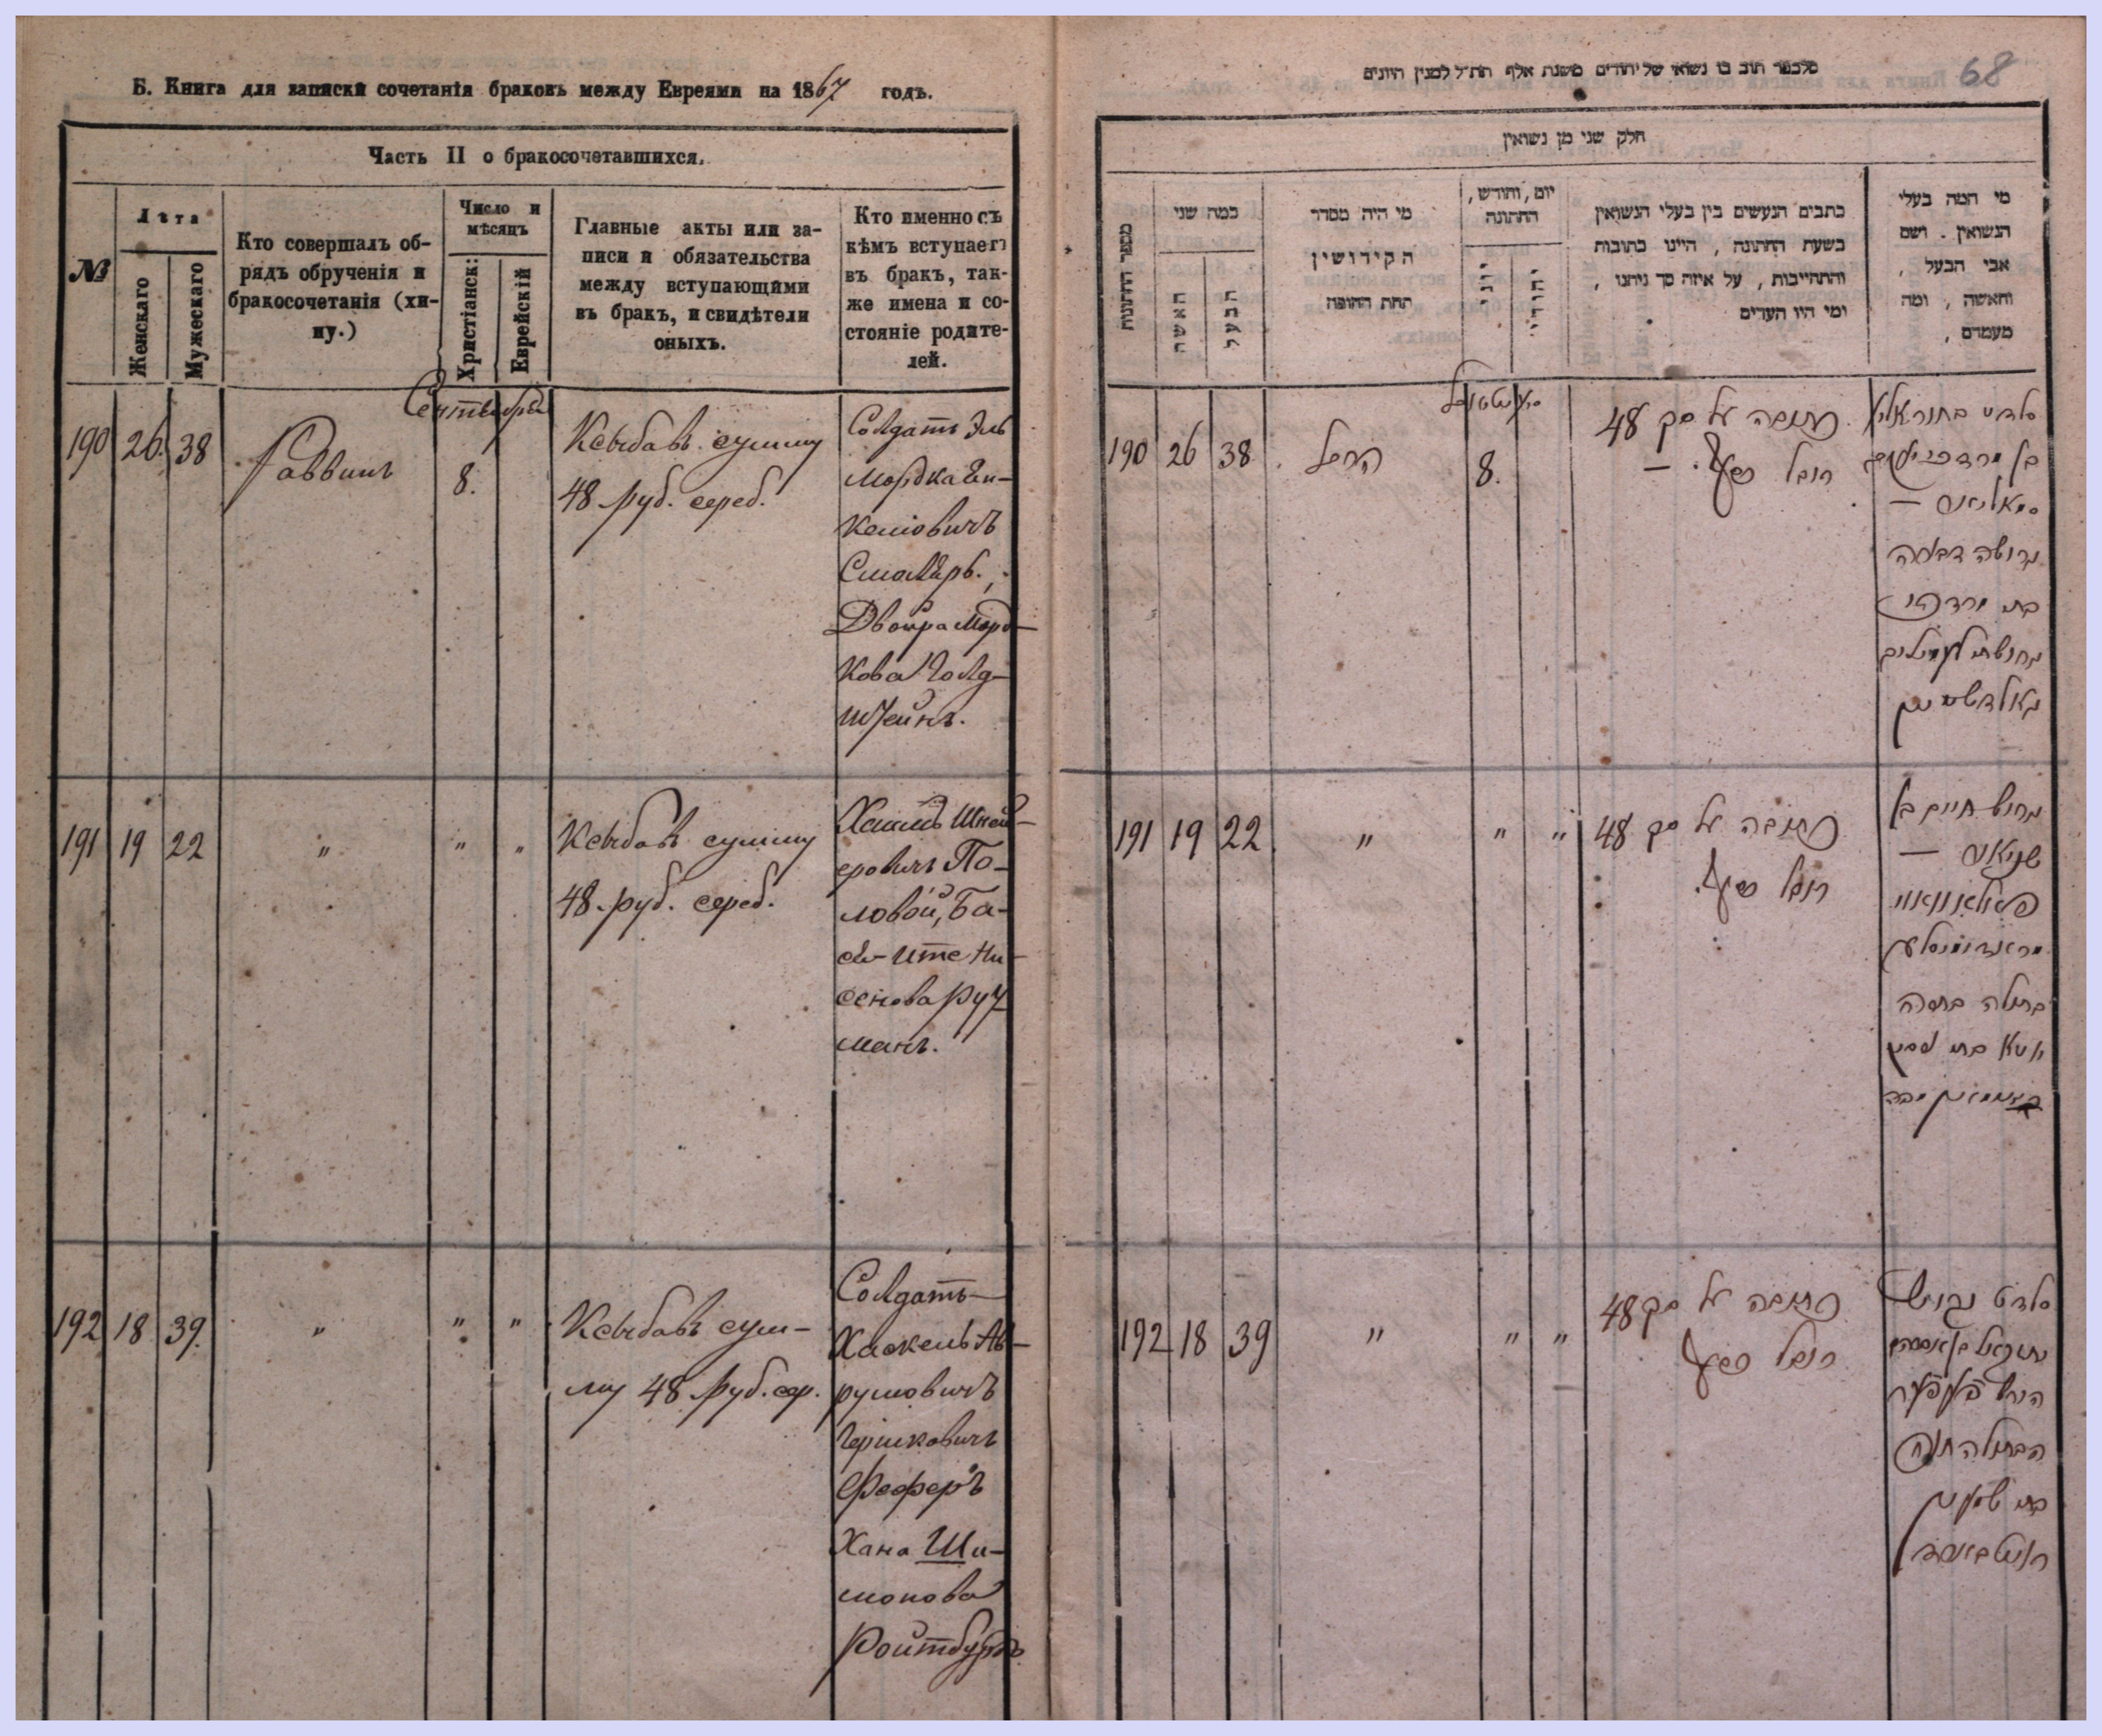 Б. Книга для записки сочетанія браковъ между Евреями на 1867 годъ.
Часть II о бракосочетавшихся.
№
Лѣта
Женскаго
Мужескаго
Кто совершалъ об-
рядъ обрученія и
бракосочетанія (хи-
пу.)
Число и
мѣсяцъ
Христіанск:
Еврейскій
Главные акты или за-
писи и обязательства
между вступающими
въ бракъ, и свидѣтели
оныхъ.
Кто именно съ
кѣмъ вступаетъ
въ бракъ, так-
же имена и со-
стояніе родите-
лей.
Сентября
190 26. 38 Раввинъ 8.
Ксыбавъ сумму
48 руб. сереб.
Солдатъ Эль
Мордка
Смоляръ.,
Двойра Морд-
кова Голд-
штейнъ.
191 19 22 " " "
Ксыбавъ сумму
48 руб. сереб.
Хаимъ Шней-
еровичъ По-
ловой, Ба-
ся-Ите Ни-
сенова Руч
манъ.
192 18 39. " " "
Ксыбавъ сум-
му 48 руб. сер.
Солдатъ
Хаскель Ав-
румовичъ
Гершковичъ
Феферъ
Хана Ши-
монова
Ройтбурдъ
68
חלק שני מן נשואין
מספר החתונות
כמה שני
האשה
הבעל
מי היה מסדר
הקידושין
תחת החופה
יום, וחודש,
החתונה
יוני
יהודי
כתבים הנעשים בין בעלי הנשואין
בשעת החתונה, היינו כתובות
והתחייבות, על איזה סך ניתנו,
ומי היו העדים
מי המה בעלי
הנשואין. ושם
אבי הבעל,
והאשה, ומה
מעמדם,
190 26 38 8.
כתובה על סך 48
רובל כסף. —
גרושה דבורה
בת מרדכי
גאלדשטיין
191 19 22 " " "
כתובה על סך 48
רובל כסף.
חיים בן
בתולה באסיה
איטא בת ניסן
192 18 39 " " "
כתובה על סך 48
רובל כסף
הבתולה חנה
בת שמעון
רויטבורד